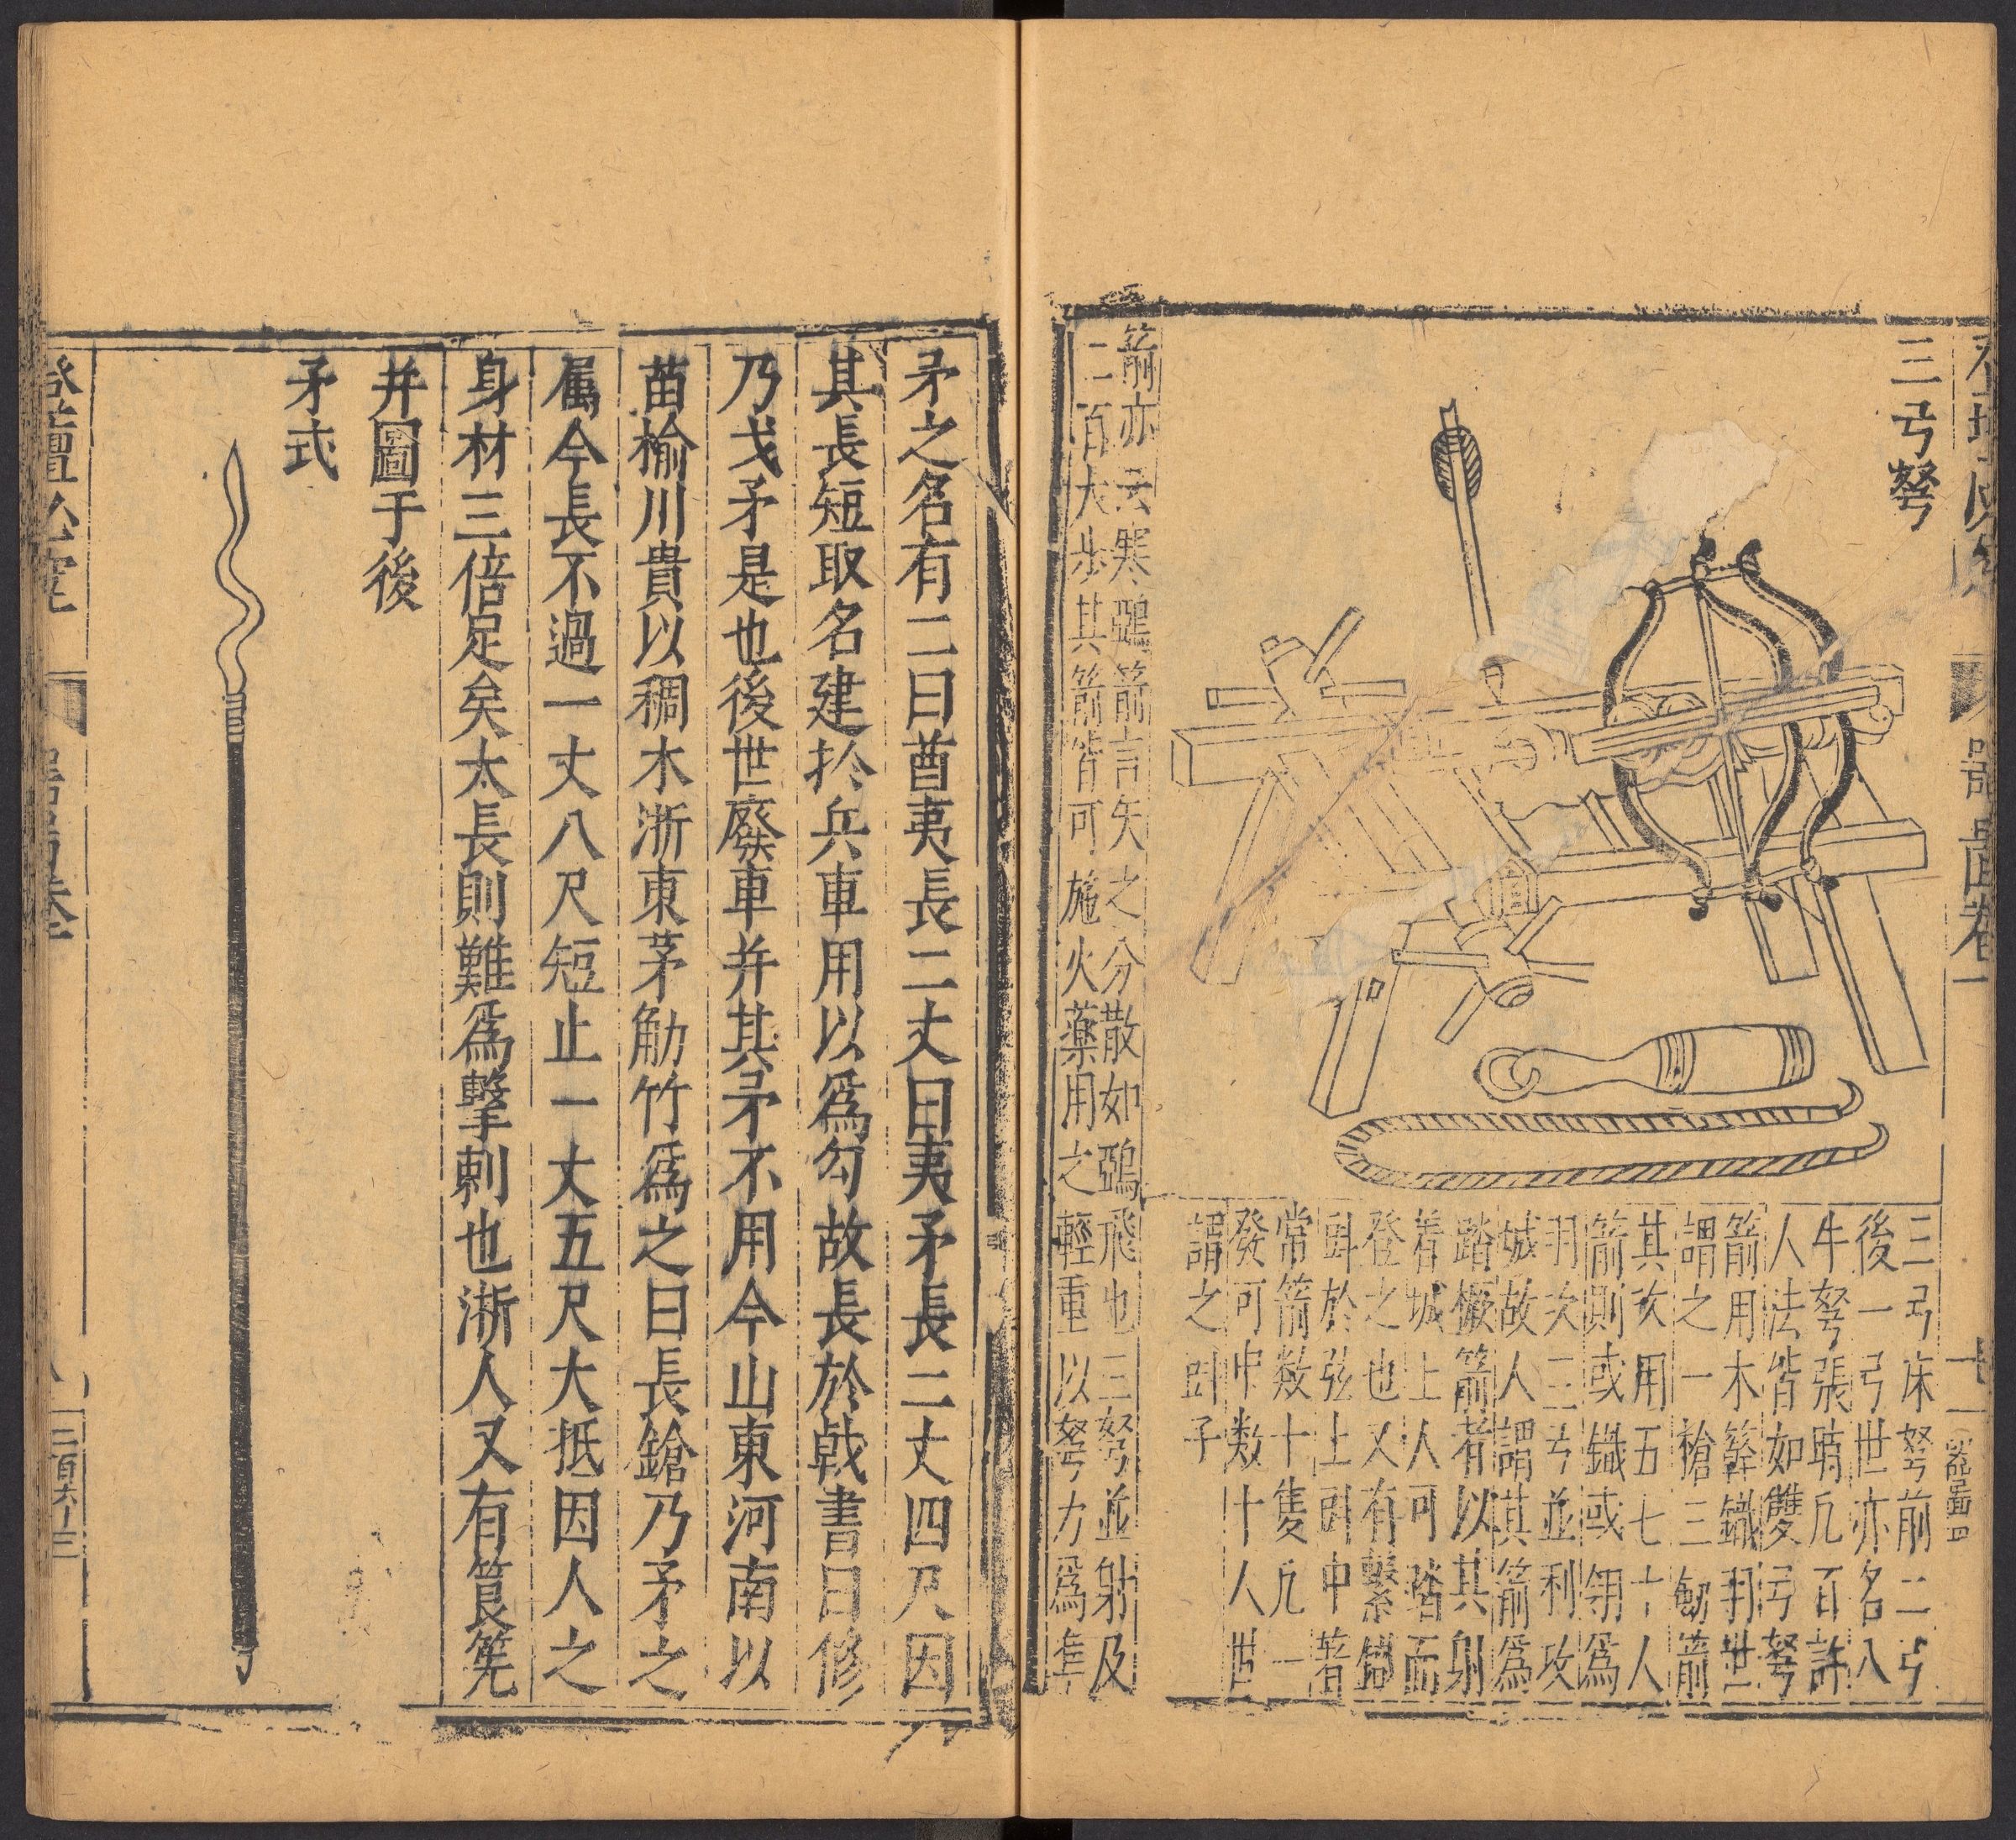 三弓弩
三弓床弩前二弓
後一弓世亦名八
牛弩張時凢百許
人法皆如雙弓弩
箭用木簳鐵羽世
謂之一槍三劒箭
其次用五七十人
箭則或鐵或翎爲
羽次三弓並利攻
城故人謂其箭爲
踏橛箭者以其射
着城上人可踏而
登之也又有繫鐵
㪷於弦上㪷中著
常箭數十隻凢一
發可中数十人世
謂之㪷子
箭亦云寒鴉箭言矢之分散如鴉飛也三弩並射及
二百大步其箭皆可施火藥用之輕重以弩力爲凖
矛之名有二曰酋夷長二丈曰夷矛長二丈四尺因
其長短取名建扵兵車用以爲勾故長於戟書曰修
乃戈矛是也後世廢車并其矛不用今山東河南以
苗榆川貴以稠木浙東茅竻竹爲之曰長鎗乃矛之
属今長不過一丈八尺短止一丈五尺大抵因人之
身材三倍足矣太長則難爲擊刺也浙人又有筤筅
并圖于後
矛式
登壇必究
器圖卷一
二百六十三